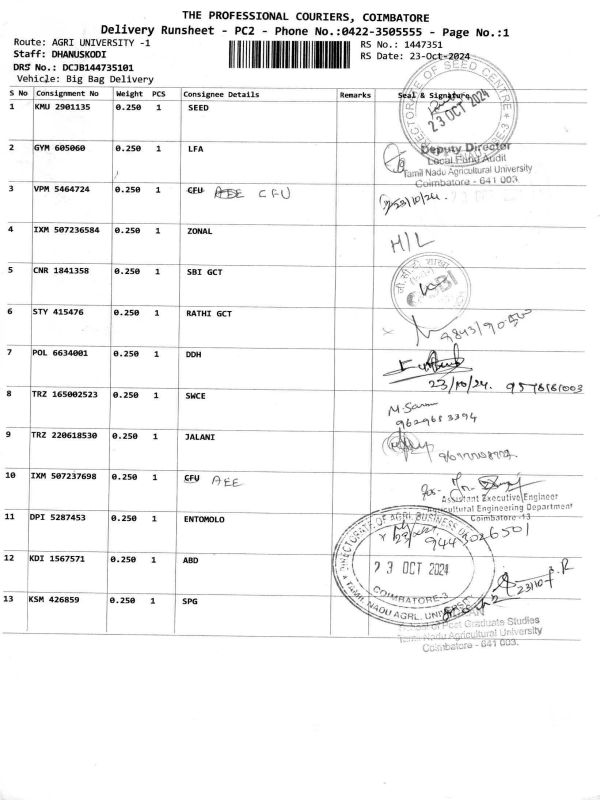 THE PROFESSIONAL COURIERS, COIMBATORE
Delivery Runsheet - PC2 - Phone No.:0422-3505555 - Page No.:1
Route: AGRI UNIVERSITY -1
RS No.: 1447351
Staff: DHANUSKODI
RS Date: 23-Oct-2024
DRS No.: DCJB144735101
Vehicle: Big Bag Delivery
S No Consignment No Weight PCS Consignee Details Remarks Seal & Signature
1 KMU 2901135 0.250 1 SEED
DIRECTORATE OF SEED CENTRE
23 OCT 2024
2 GYM 605060 0.250 1 LFA
Deputy Director
Local Fund Audit
Tamil Nadu Agricultural University
Coimbatore - 641 003.
3 VPM 5464724 0.250 1 CFU AEE CFU
23/10/24.
4 IXM 507236584 0.250 1 ZONAL
H/L
5 CNR 1841358 0.250 1 SBI GCT
6 STY 415476 0.250 1 RATHI GCT
7 POL 6634001 0.250 1 DDH
23/10/24.
8 TRZ 165002523 0.250 1 SWCE
9 TRZ 220618530 0.250 1 JALANI
10 IXM 507237698 0.250 1 CFU AEE
Assistant Executive Engineer
Agricultural Engineering Department
Coimbatore-13
11 DPI 5287453 0.250 1 ENTOMOLO
DIRECTORATE OF AGRI. BUSINESS
23 OCT 2024
COIMBATORE-3
TAMIL NADU AGRL. UNIVERSITY
12 KDI 1567571 0.250 1 ABD
13 KSM 426859 0.250 1 SPG
School of Post Graduate Studies
Tamil Nadu Agricultural University
Coimbatore - 641 003.